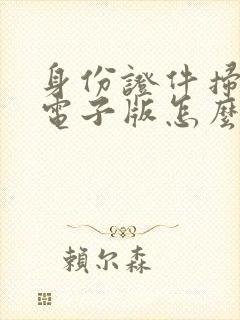 身份證件掃
電子版怎麼
賴尔森